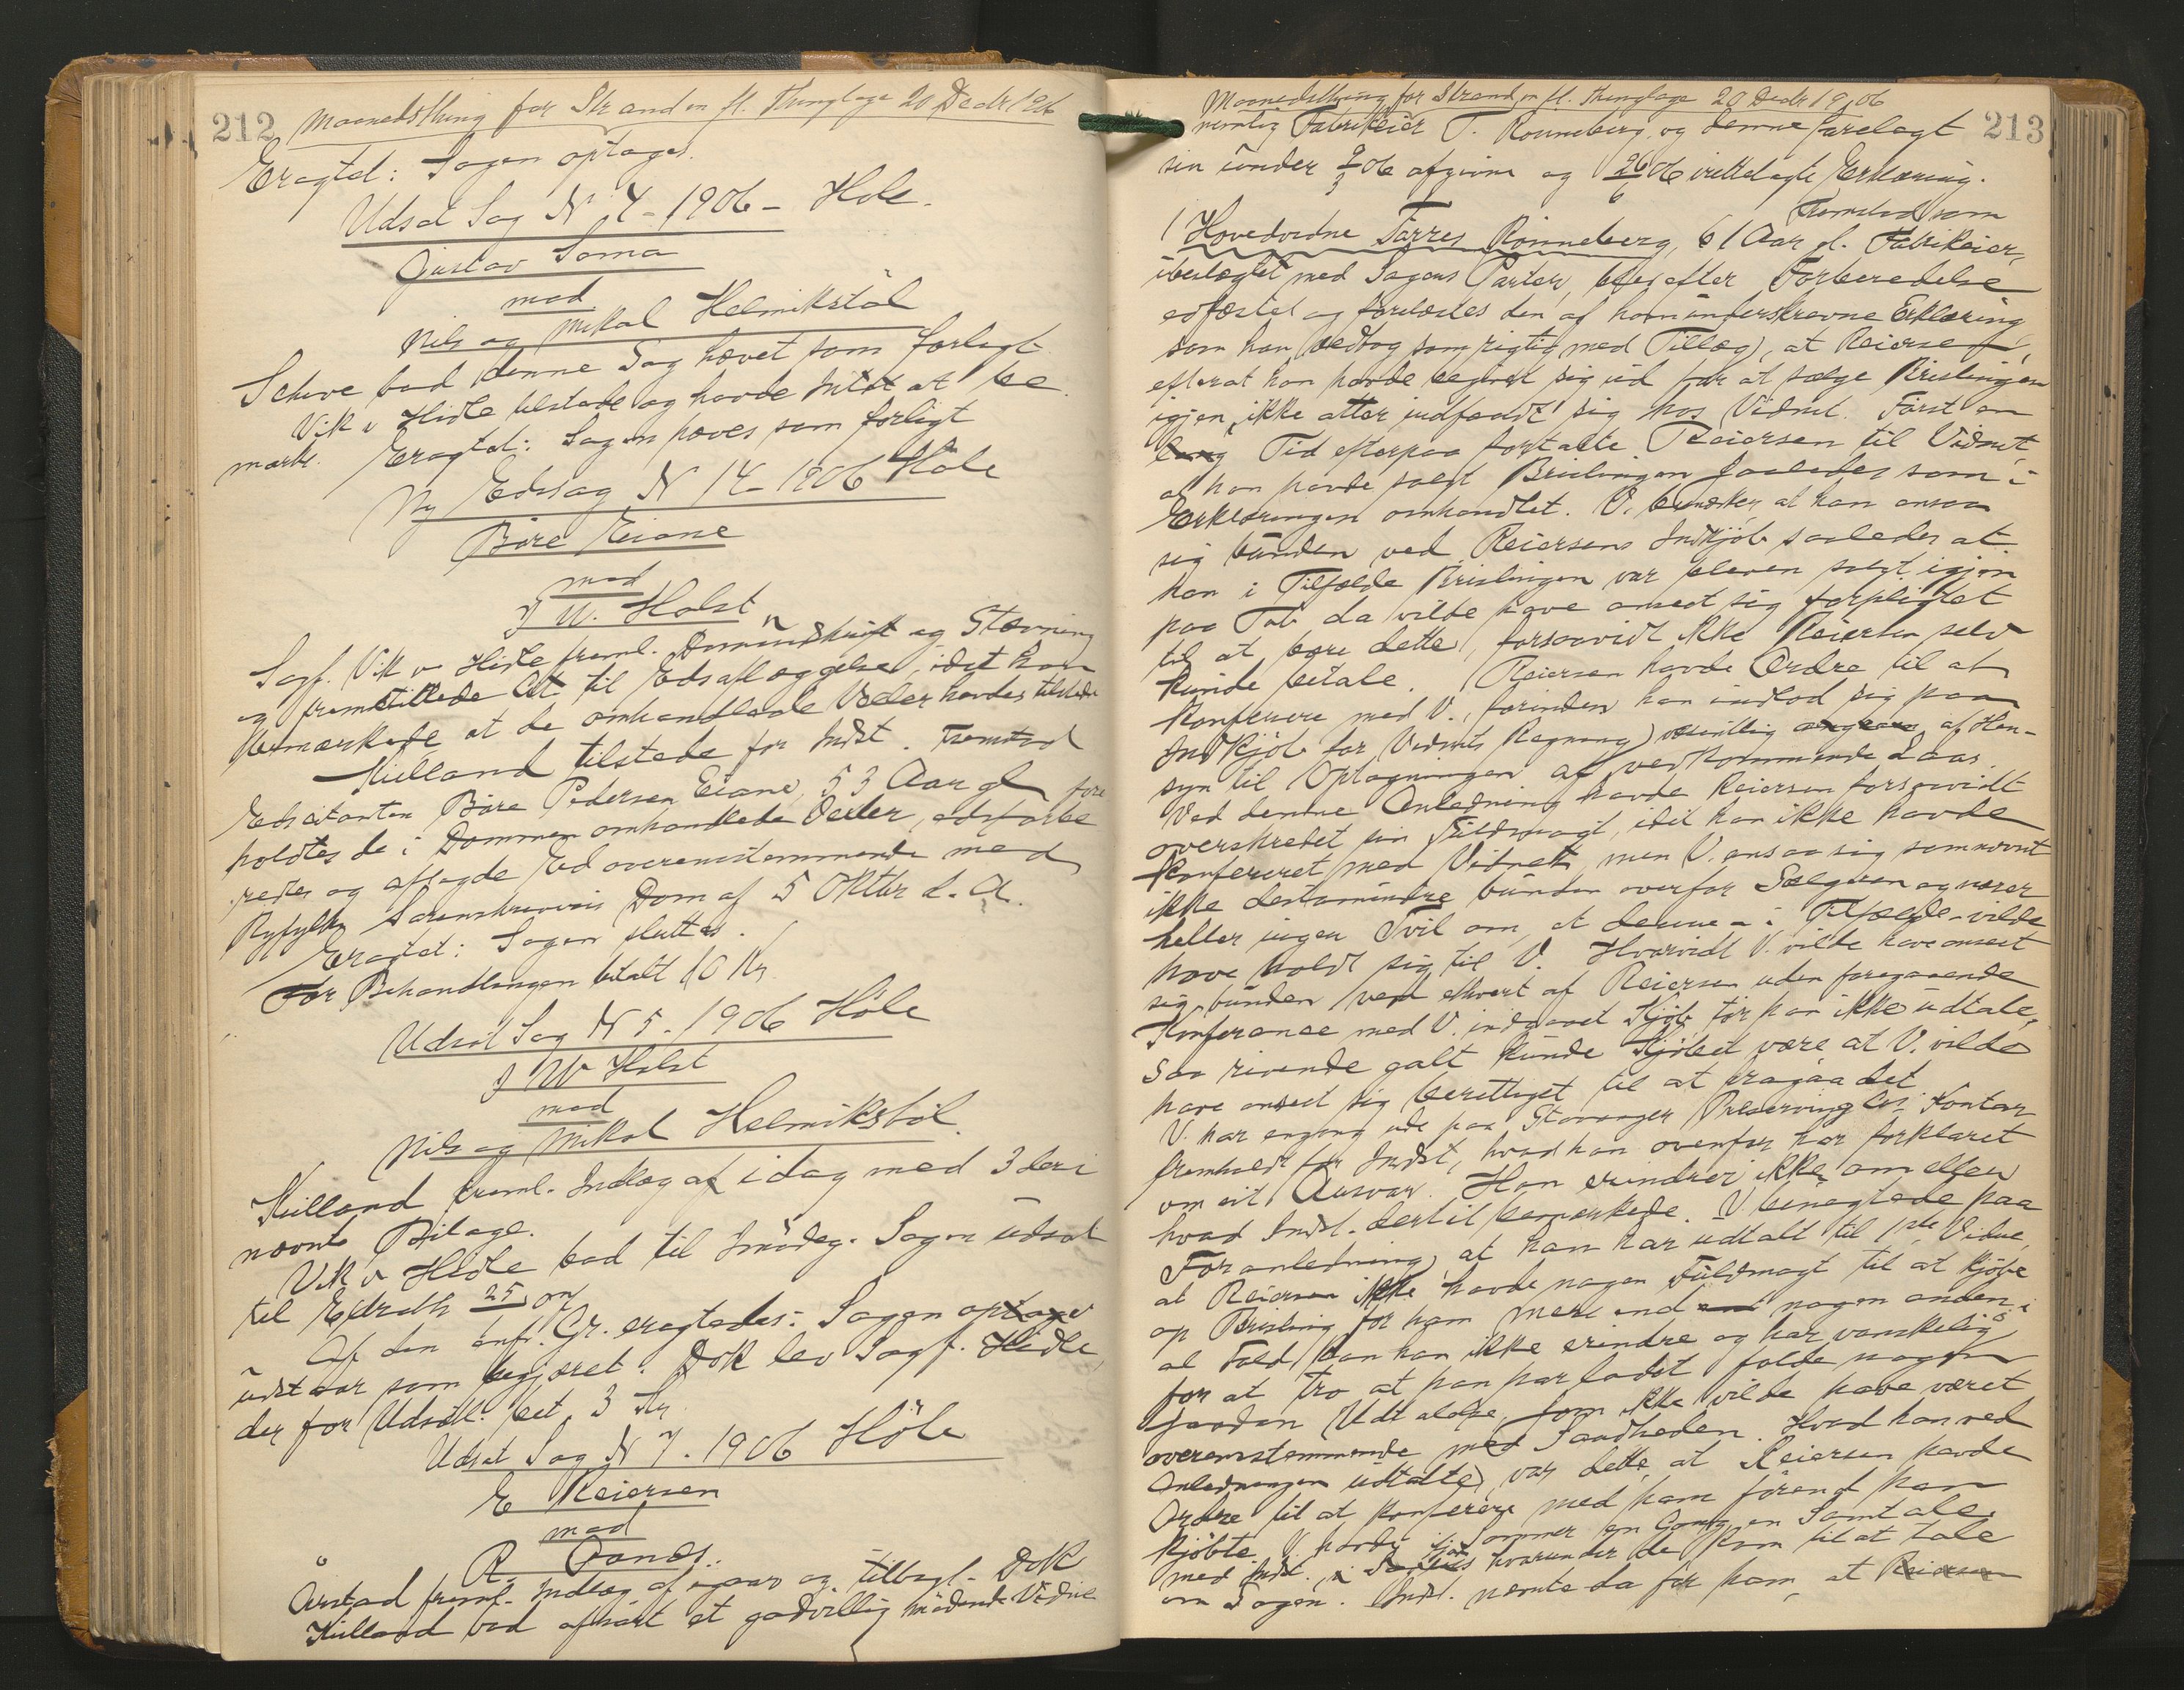 212 Maanedsthing for Strand m fl. Thinglage 20 Decbr 1906
Eragtet: Sagen optages.
Udsat Sag N 4 - 1906 - Høle.
Gustav Soma
mod
Nils og Mikal Helmikstøl
Schive bad denne Sag hævet som forligt
Vik v Hidle tilstede og havde Intet at be
mærke. Eragtet: Sagen hæves som forligt
Ny Edssag N 14 - 1906 Høle
Båre Eiane
mod
J W. Holst
Sagf. Vik v Hidle freml. Domsudskrift og Stævning
og fremstillede Cit. til Edsaflæggelse, idet han
bemærkede at de omhandlede Veder havdes tilstede
Kielland tilstede for Indst. Fremstod
Edscitanten Båre Pedersen Eiane, 53 Aar gl fore
holdtes de i Dommen omhandlede Veder, edsforbe
redtes og aflagde Ed overensstemmende med
Ryfylke Sorenskriveris Dom af 5 Oktbr d. A.
Eragtet: Sagen sluttes.
For Behandlingen betalt 10 Kr
Udsat Sag N 5. 1906 Høle
J W Holst
mod
Nils og Mikal Helmikstøl.
Kielland freml. Indlæg af idag med 3 deri
nævnte Bilage.
Vik v Hidle bad til Imødeg. Sagen udsat
til Eidredth 25
Af den anf. Gr. eragtedes: Sagen optages
udstaar som begjæret. Dok lev Sagf. Hidle,
der for Udsæt. bet 3 Kr
Udsat Sag N 7. 1906 Høle
E Reiersen
mod
R.
Aarstad freml. Indlæg af igaar og tilbagel. Dok
Kielland bad afhørt et godvillig mødende Vidne
Maanedsthing for Strand m fl. Thinglage 20 Decbr 1906
213
nemlig Fabrikeier T. Rønneberg, og denne forelagt
sin under 9/3 06 afgivne og 26/6 06 irettelagte Erklæring.
Fremstod som
1 Hovedvidne Tørres Rønneberg, 61 Aar gl. Fabrikeier,
ubeslægtet med Sagens Parter, blev efter Forberedelse
edfæstet og forelæstes den af ham underskrevne Erklæring
som han vedtog som rigtig med Tillæg, at Reiersen,
efterat han havde begivet sig ud for at sælge Brislingen
igjen, ikke atter indfandt sig hos Vidnet. Først en
lang Tid efterpaa fortalte Reiersen til Vidnet,
at han havde solgt Brislingen saaledes som i
Erklæringen omhandlet. V. bemærker at han ansaa
sig bunden ved Reiersens Indkjøb saaledes at
han i Tilfælde Brislingen var bleven solgt igjen
paa Tab da vilde have anseet sig forpligtet
til at bære dette, forsaavidt ikke Reiersen selv
kunde betale. Reiersen havde Ordre til at
konferere med V., forinden han indlod sig paa
Indkjøb for Vidnets Regning, væsentlig af Hen-
syn til Optagningen af vedkommende Laas.
Ved denne Anledning havde Reiersen forsaavidt
overskredet sin Fuldmagt, idet han ikke havde
konfereret med Vidnet, men V. ansaa sig som nævnt
ikke destomindre bunden overfor Sælgeren og nærer
heller ingen Tvil om, at denne - i Tilfælde - vilde
have holdt sig til V. Hvorvidt V. vilde have anseet
sig bunden ved ethvert af Reiersen uden foregaaende
Konferance med V. indgaaet Kjøb tør han ikke udtale,
saa rivende galt kunde Kjøbet være at V. vilde
have anseet sig berettiget til at fragaa det.
V. har engang ude paa Stavanger Preserving Co's Kontor
fremholdt for Indst, hvad han ovenfor har forklaret
om sit Ansvar. Han erindrer ikke om eller
hvad Indst. dertil bemærkede. V benægtede paa
Foranledning, at han har udtalt til 1ste Vidne,
at Reiersen ikke havde nogen Fuldmagt til at kjøbe
op Brisling for ham mere end nogen anden, i
al Fald kan han ikke erindre og har vanskeligt
for at tro at han har ladet falde nogen
saadan Udtalelse, som ikke vilde have været
overensstemmende med Sandheden. Hvad han ved
Anledningen udtalte, var dette, at Reiersen havde
Ordre til at konferere med ham førend han
kjøbte. V. havde ifjor Sommer en Gang en Samtale
med Indst. hvorunder de kom til at tale
om Sagen. Indst. nævnte da for ham, at Reiersen